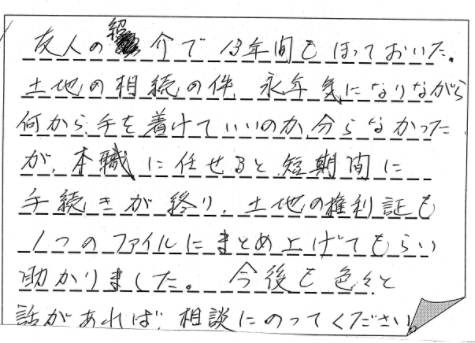 友人の紹介で 13年間もほっておいた。
土地の相続の件 永年気になりながら
何から手を着けていいのか分らなかった
が、本職に任せると短期間に
手続きが終り、土地の権利証も
1つのファイルにまとめ上げてもらい
助かりました。 今後も色々と
話があれば、相談にのってください。